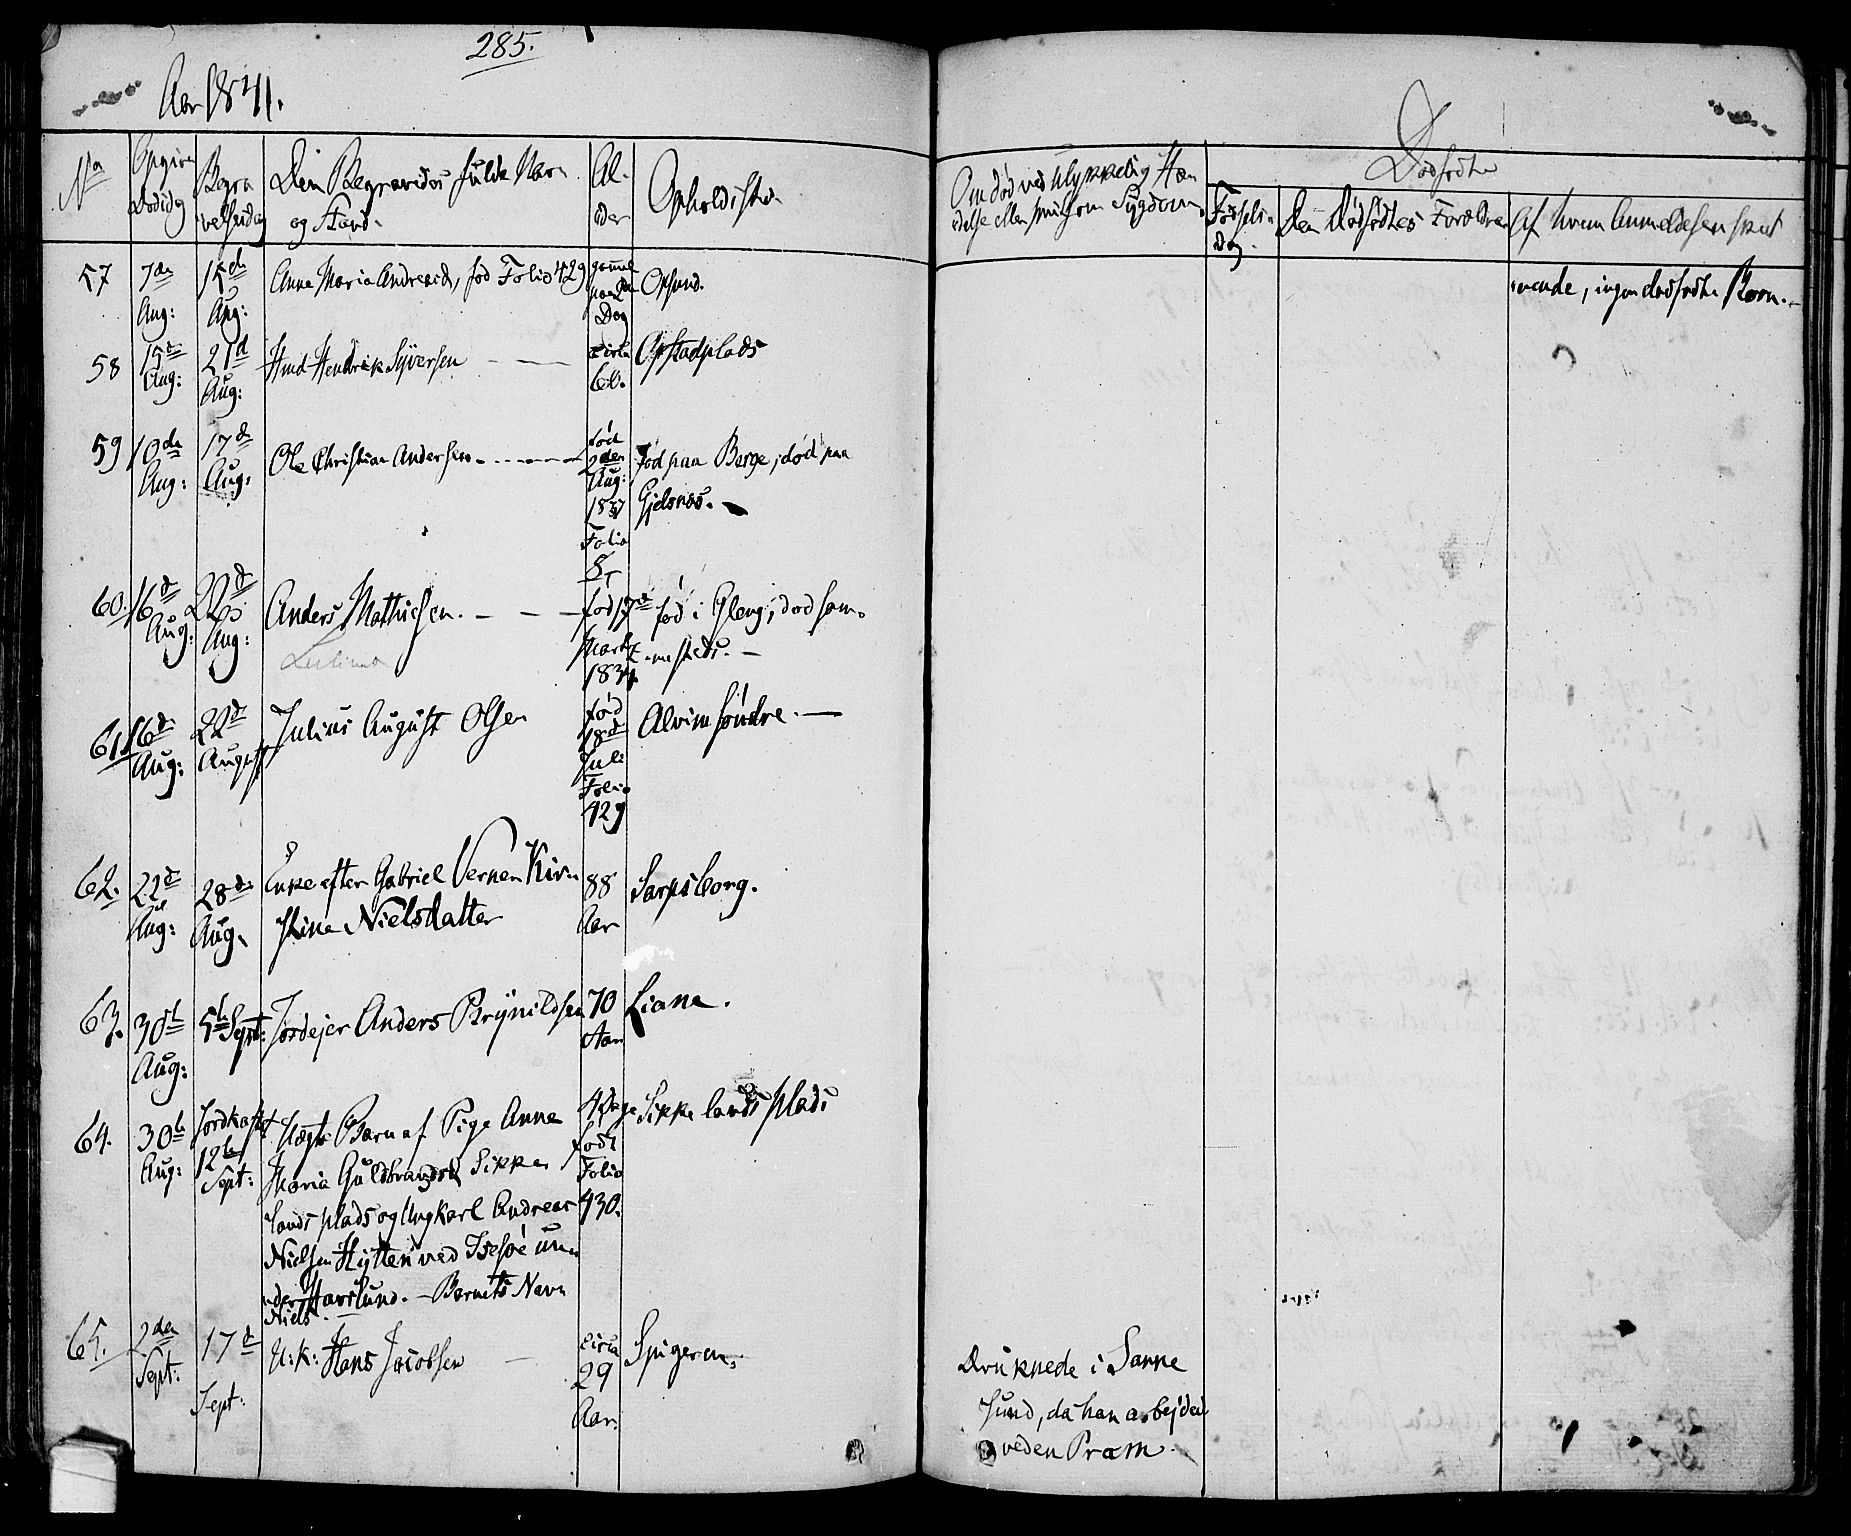 285.
Aar 1841.
No
Begra
velsesdag
Den Begravedes fulde Navn
og Stand.
Al-
der
Opholdssted
Om død ved ulykkelig Hæn
delse eller smitsom Sygdom
Dødfødte
Fødsels-
Dag.
Den Dødfødtes Forældre
Af hvem Anmeldelsen skeet
57
7de
Aug:
15de
Aug:
Anne Maria Andreasd, fød Folio 429
Dag
Opsund.
ingen dødfødte Børn.
58
15de
Aug:
21d
Aug:
Hmd Hendrik Syversen
circa
60.
Opstadplads
59
10de
Aug:
17de
Aug:
Ole Christian Andersen
fød
2den
Aug:
1837
Folio
8,
Fød paa Berge, død paa
Gjelsnæs.
60.
16d
Aug:
22d
Aug:
Anders Mathiesen.
fød 17d
Marts
1834
fød i Gleng; død sam-
mesteds.
61.
16d
Aug:
22d
August
Julius August Olsen
fød
18d
Juli
Folio
429
Alvim søndre.
62.
22d
Aug:
28d
Aug.
Enke efter Gabriel Vernen Kirs
stine Nielsdatter
88
Aar
Sarpsborg.
63.
30th
Aug:
5th Sept:
Jordejer Anders Brynildsen
70
Aar
Liane.
64.
30th
Aug:
Jordkastet
12th
Sept:
Uægte Barn af Pige Anne
Maria Guldbrandsd Sikke
lands plads og Ungkarl Andreas
Nielsen Hytten ved Isesøe un
der Hafslund. - Barnets Navn
Niels.
4 Dage
født
Folio
430.
Sikkelands plads
65.
2den
Sept:
17d
Sept:
U:k: Hans Jacobsen
circa
29
Aar.
Spigeren.
Druknede i Sanne
sund, da han arbejdede
ved en Pram.